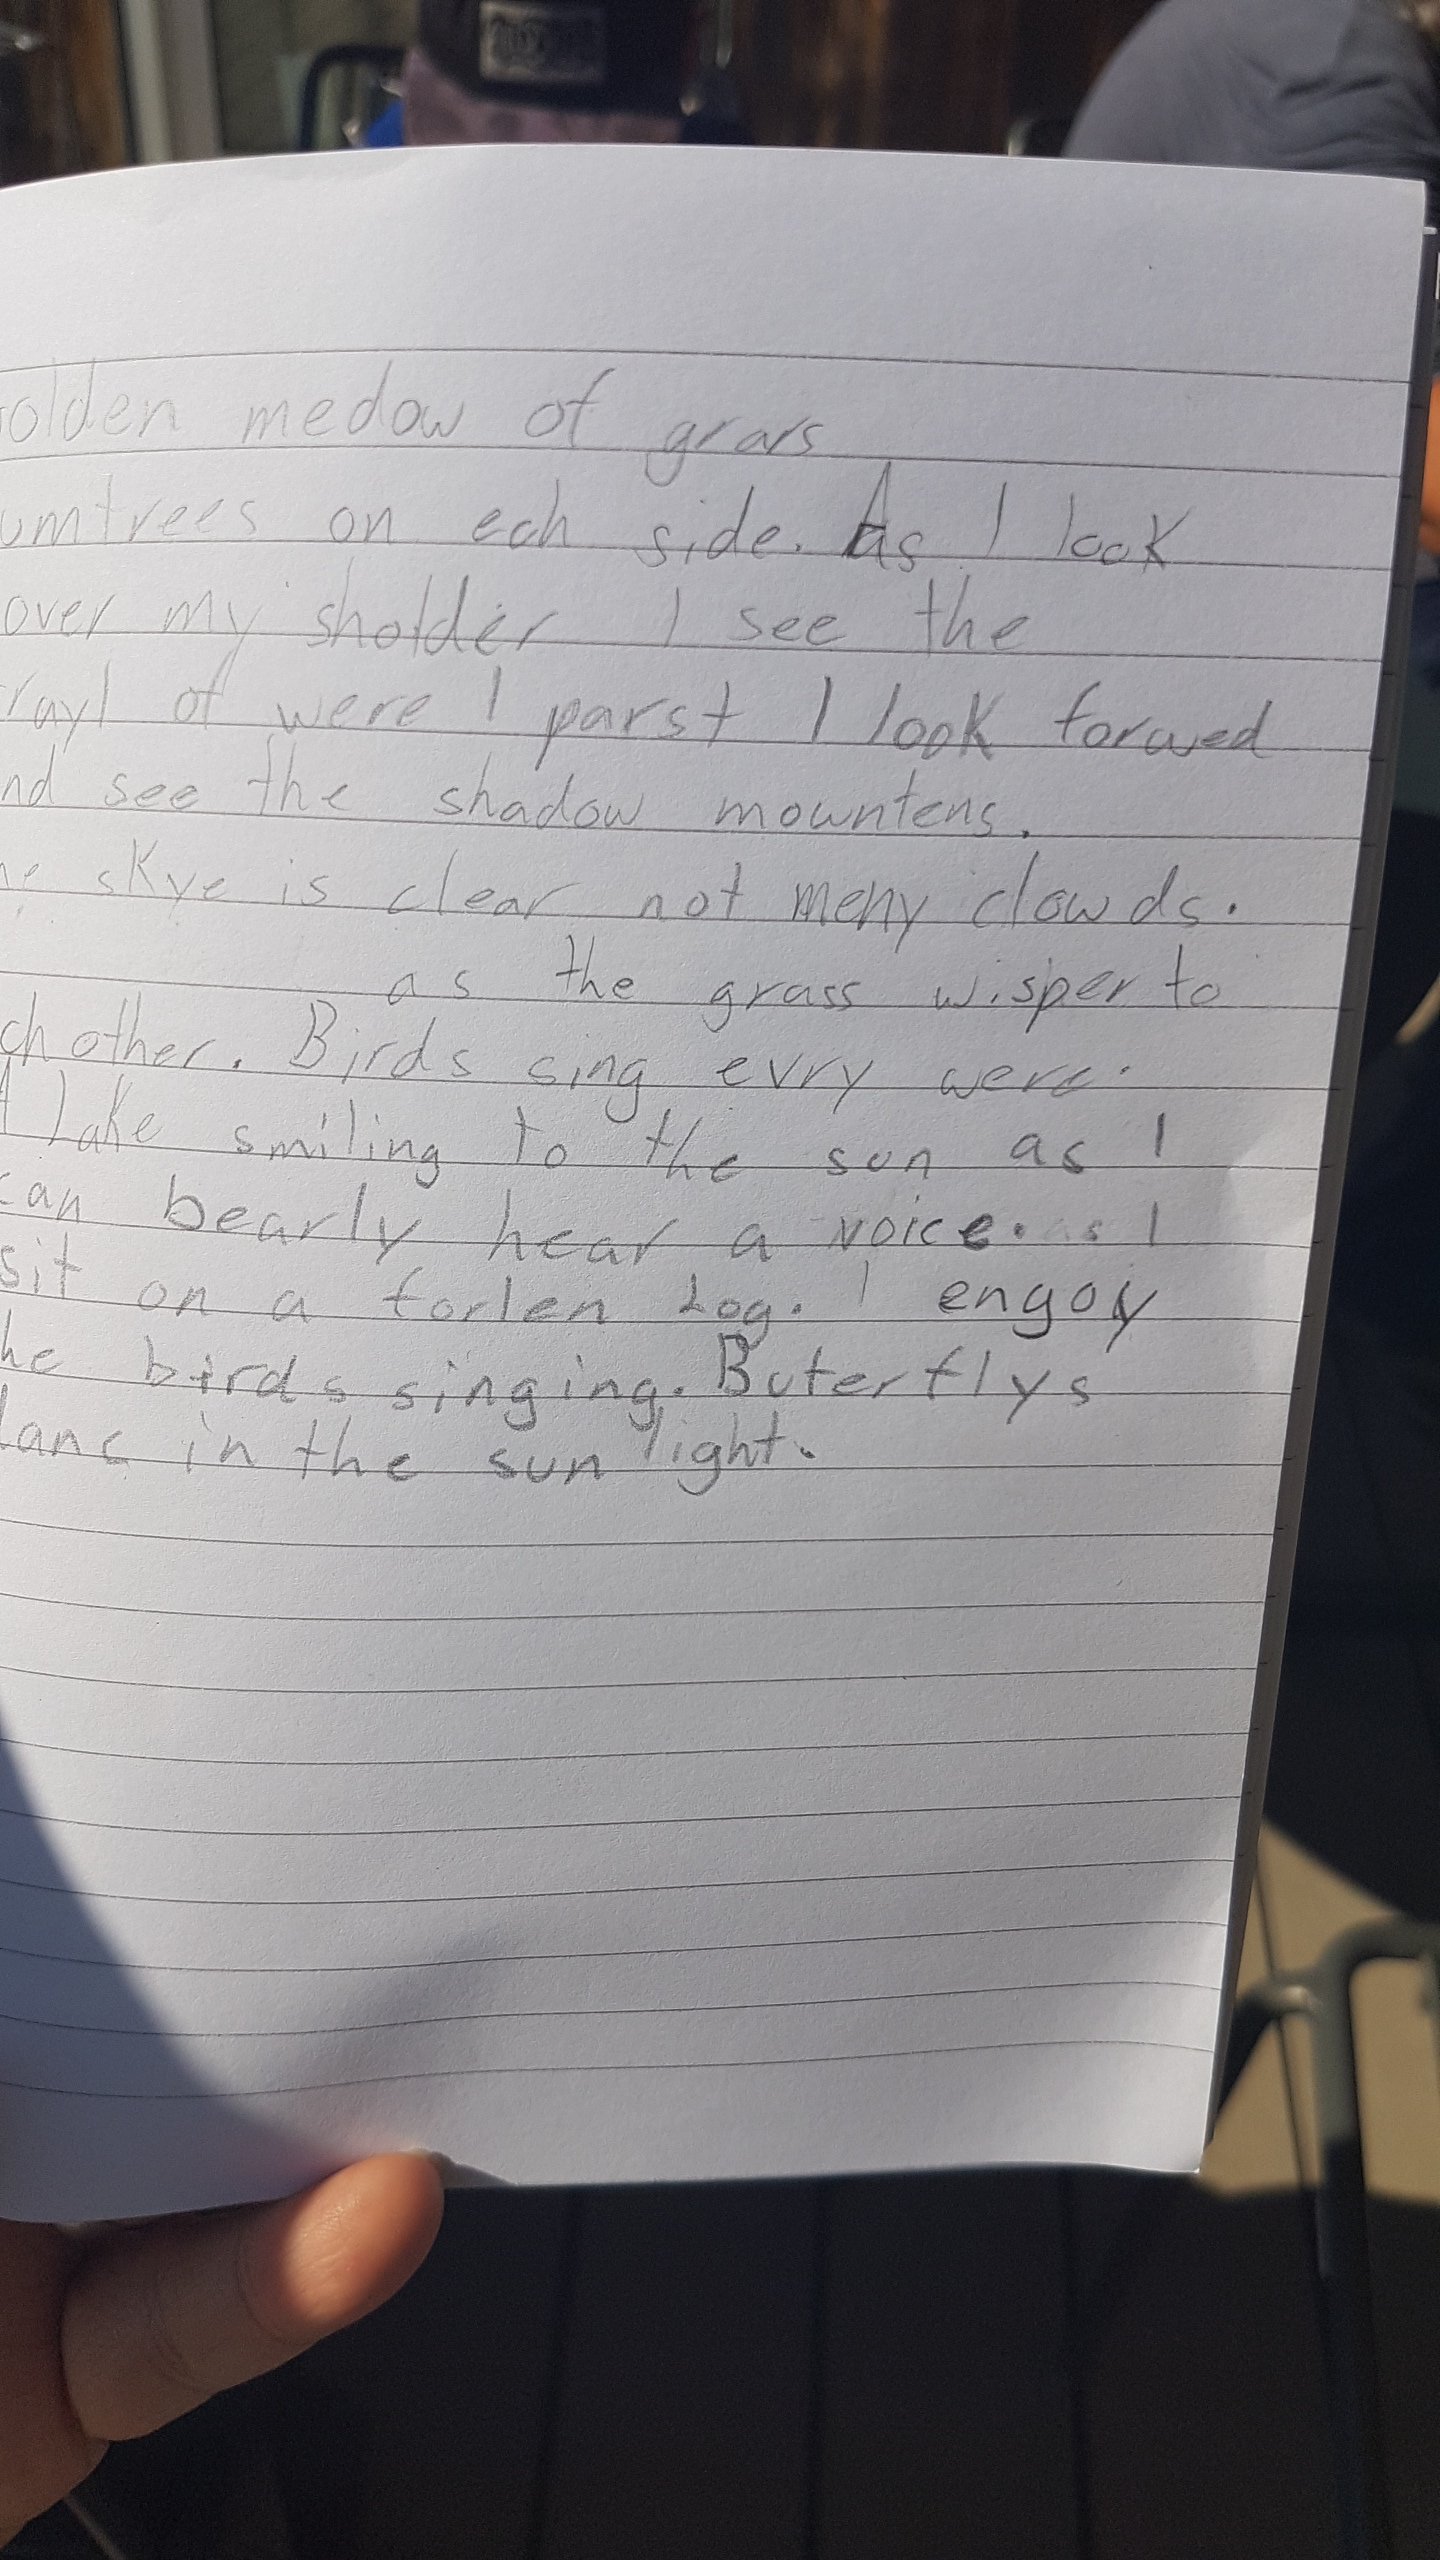 olden medow of grars
umtrees on ech side. As I look
over my sholder I see the
rayl of were I parst I look forwed
nd see the shadow mowntens.
he skye is clear not meny clowds.
as the grass wisper to
ch other. Birds sing evry were.
A lake smiling to the sun as I
can bearly hear a voice. as I
sit on a forlen Log. I engoy
he birds singing. Buterflys
danc in the sun light.